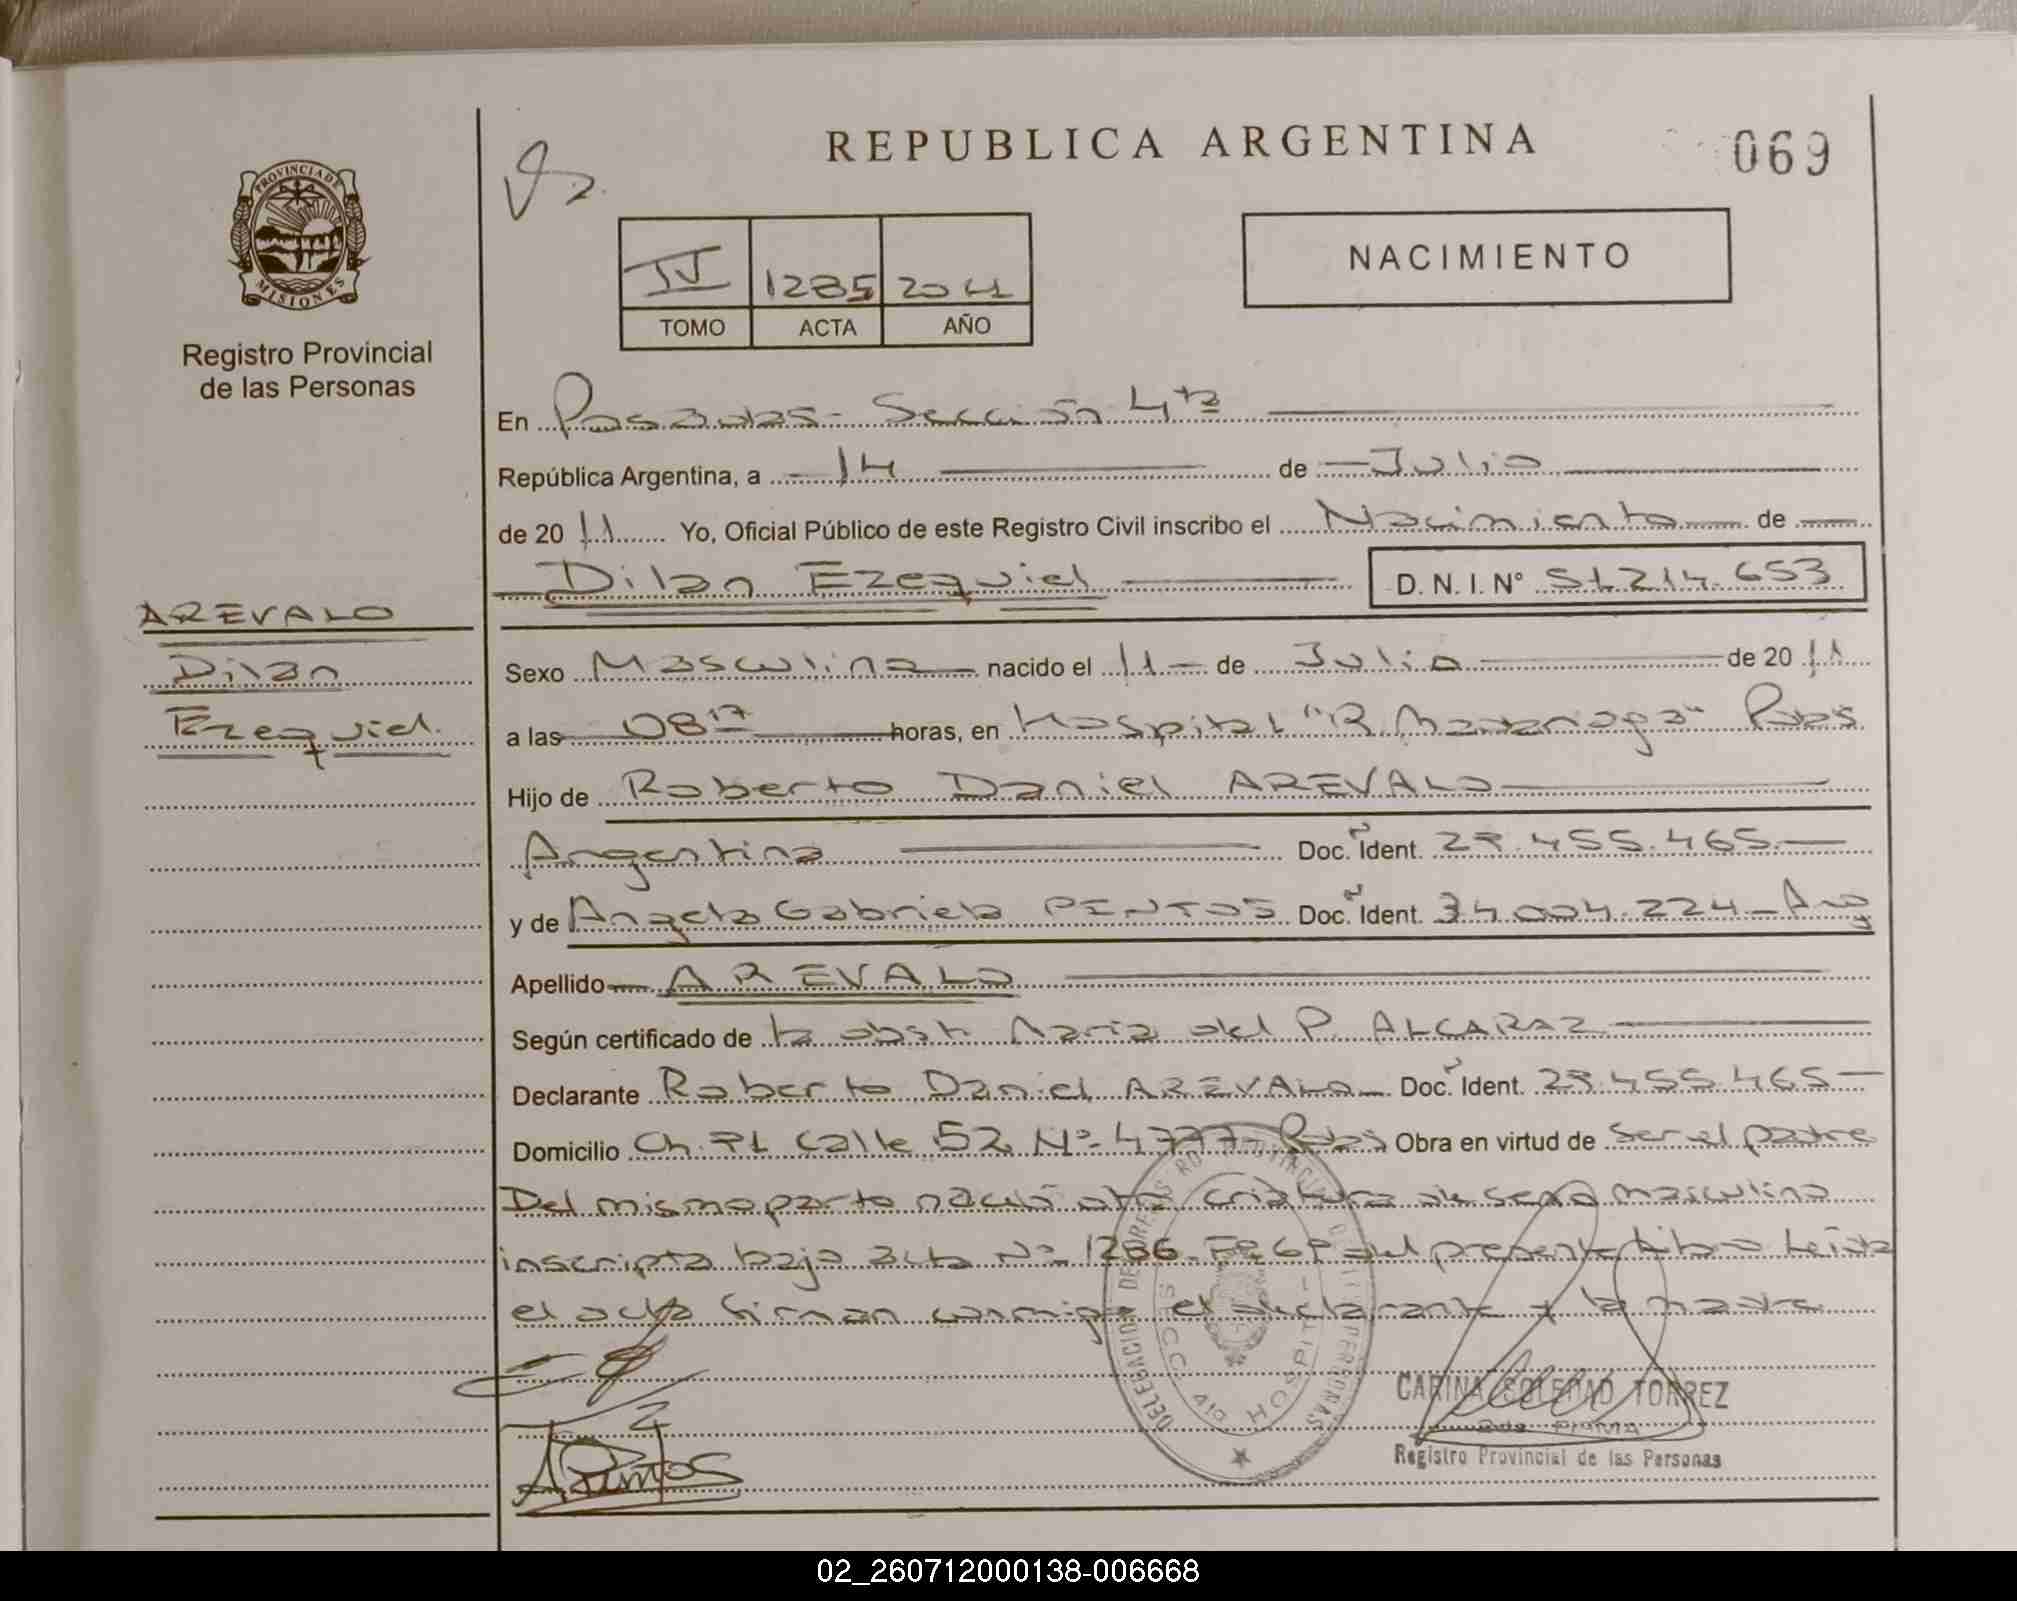 REPUBLICA ARGENTINA
069
PROVINCIA DE
MISIONES
Registro Provincial
de las Personas
II 1285 2011
TOMO ACTA AÑO
NACIMIENTO
En Posadas - Sección 4ta
República Argentina, a 14 de Julio
de 2011 Yo, Oficial Público de este Registro Civil inscribo el Nacimiento de
Dilan Ezequiel D. N. I. N° 51.214.653
AREVALO
Dilan
Ezequiel.
Sexo Masculino nacido el 11 de Julio de 2011
a las 08 17 horas, en Hospital "R. Madariaga" Pdas.
Hijo de Roberto Daniel AREVALO
Argentino Doc. Ident. .455.465.
y de Angela Gabriela PINTOS Doc. Ident. 34.004.224 - Arg
Apellido AREVALO
Según certificado de la obst. María del P. ALCARAZ
Declarante Roberto Daniel AREVALO Doc. Ident. .455.465
Domicilio Ch. Calle 52 N° 4777 - Pdas Obra en virtud de ser el padre
Del mismo parto nació otra criatura de sexo masculino
inscripta bajo acta N° 1286 del presente libro Leída
el acta firman conmigo el declarante y la madre
A. Pintos
DELEGACION DE REGISTRO PROVINCIAL DE LAS PERSONAS
SECC. 4ta HOSPITAL
CARINA SOLEDAD TORREZ
Registro Provincial de las Personas
02_260712000138-006668